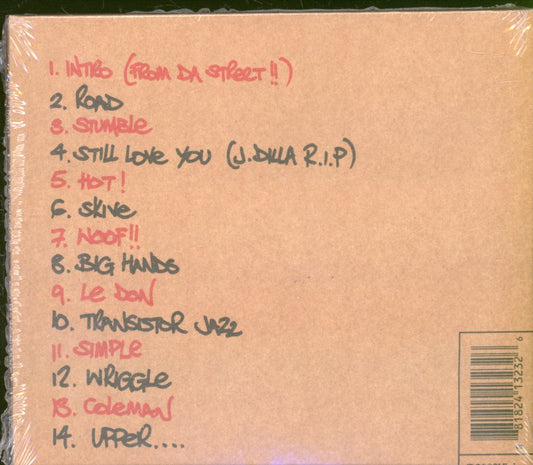 1. INTRO (FROM DA STREET!!)
2. ROAD
3. STUMBLE
4. STILL LOVE YOU (J.DILLA R.I.P)
5. HOT!
6. SKIVE
7. WOOF!!
8. BIG HANDS
9. LE DON
10. TRANSISTOR JAZZ
11. SIMPLE
12. WRIGGLE
13. COLEMAN
14. UPPER....
81824 13232 6